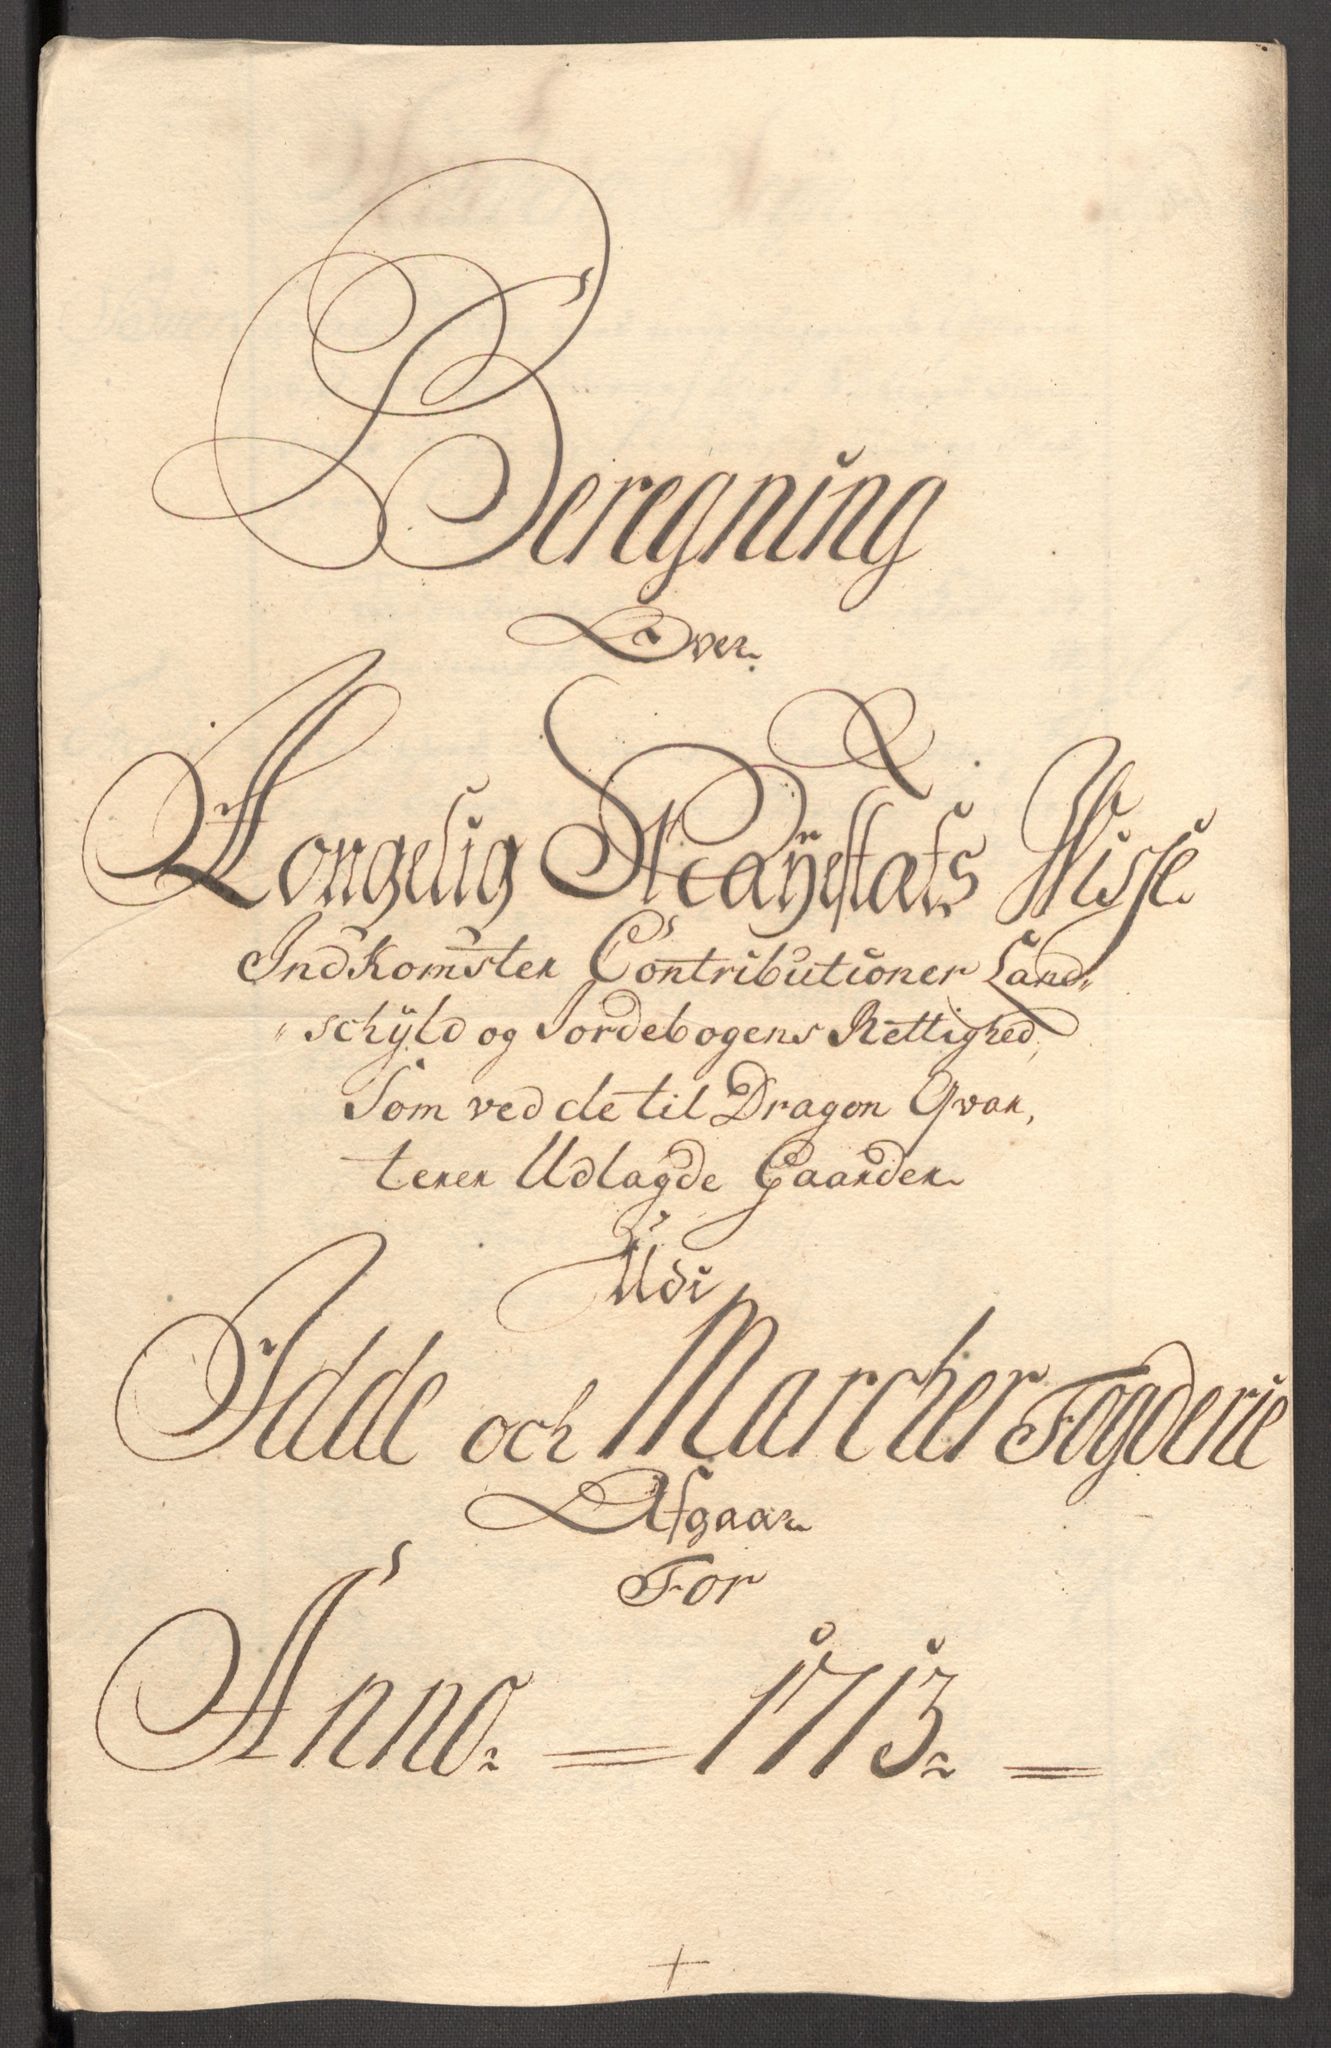 Beregning
Over
Kongelig Maÿestæts Wisse
Indkomster Contributioner Land„
„schÿld og Jordebogens Rettighed,
Som ved de til Dragon Qvar,
terer Udlagde Gaarder
Udi
Idde och Marcher Fogderie
Afgaar
For
Anno = 1713 =